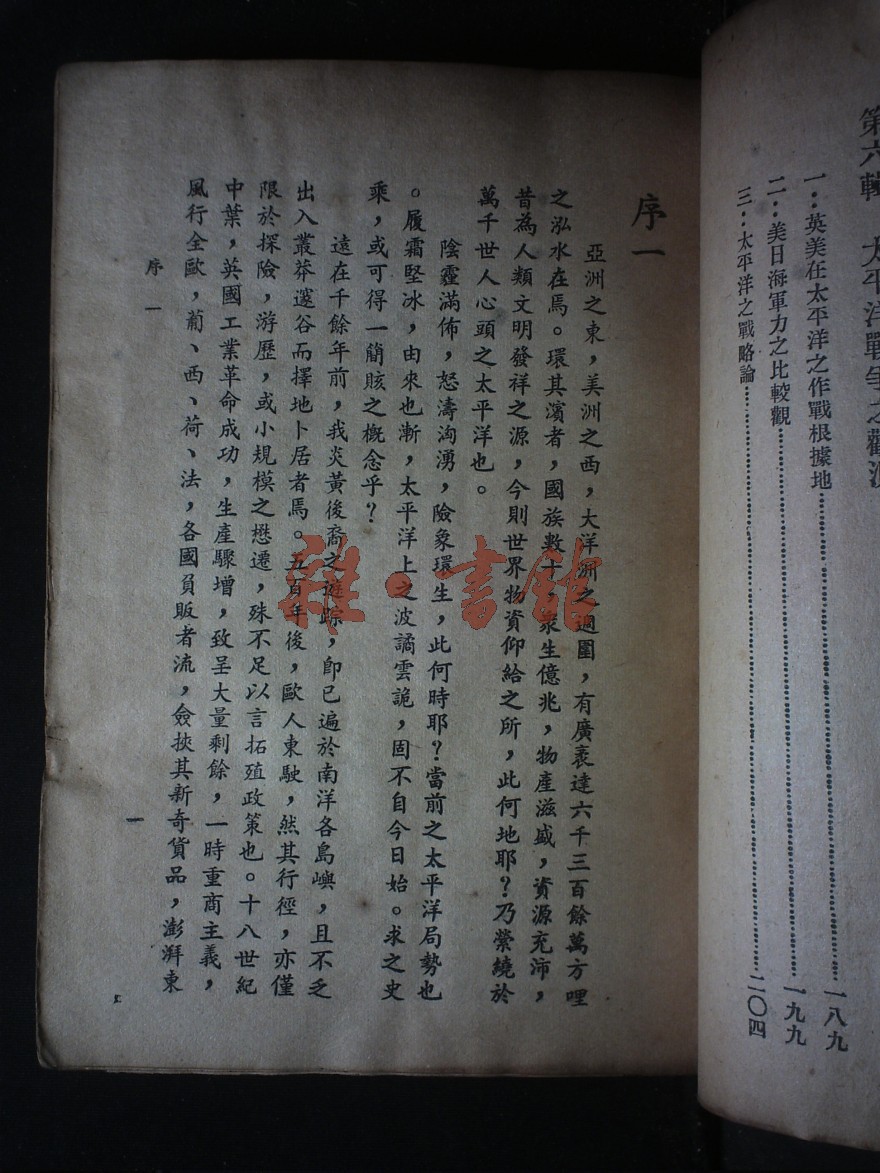 第六輯 太平洋戰爭之觀測
一‥英美在太平洋之作戰根據地……一八九
二‥美日海軍力之比較觀……一九九
三‥太平洋之戰略論……二〇四
序一
亞洲之東，美洲之西，大洋洲之週圍，有廣袤達六千三百餘萬方哩
之泓水在焉。環其濱者，國族數十，衆生億兆，物產滋盛，資源充沛，
昔為人類文明發祥之源，今則世界物資仰給之所，此何地耶？乃縈繞於
萬千世人心頭之太平洋也。
陰霾滿佈，怒濤洶湧，險象環生，此何時耶？當前之太平洋局勢也
。履霜堅冰，由來也漸，太平洋上之波譎雲詭，固不自今日始。求之史
乘，或可得一簡賅之概念乎？
遠在千餘年前，我炎黃後裔之遊踪，卽已遍於南洋各島嶼，且不乏
出入叢莽邃谷而擇地卜居者焉。五百年後，歐人東駛，然其行徑，亦僅
限於探險，游歷，或小規模之懋遷，殊不足以言拓殖政策也。十八世紀
中葉，英國工業革命成功，生產驟增，致呈大量剩餘，一時重商主義，
風行全歐，葡、西、荷、法，各國負販者流，僉挾其新奇貨品，澎湃東
序一
一
雜·書館